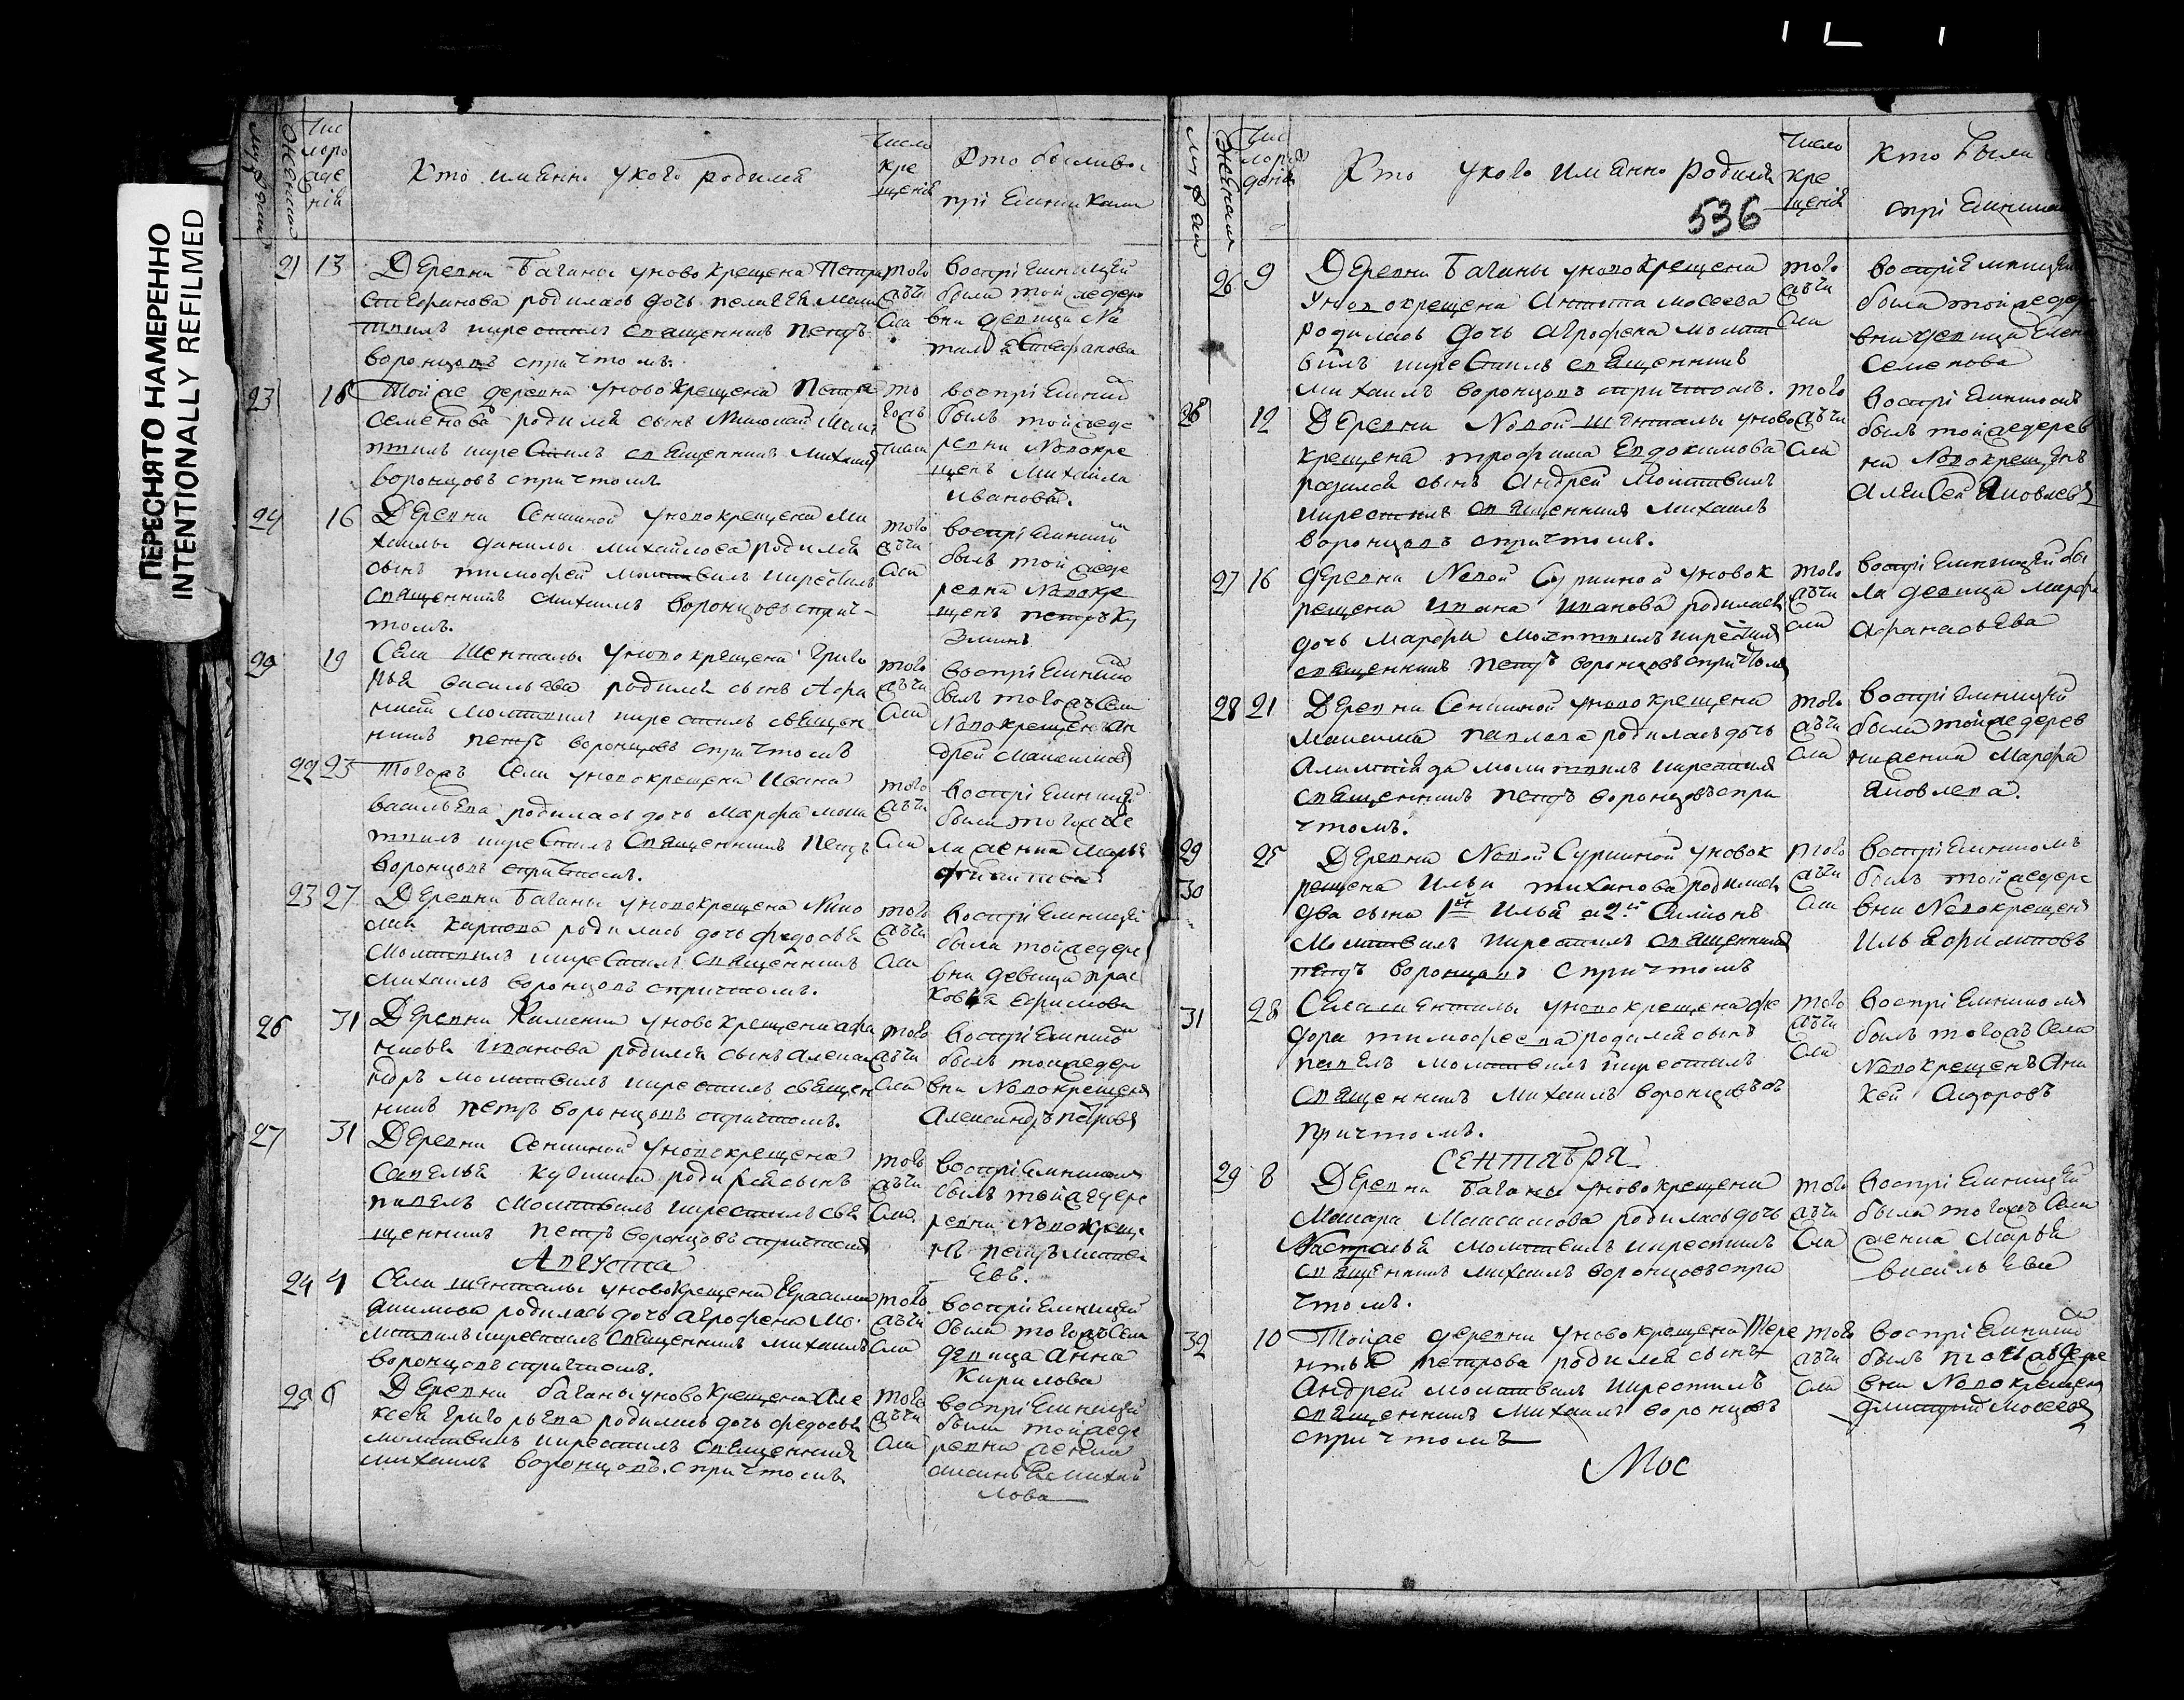 ПЕРЕСНЯТО НАМЕРЕННО
INTENTIONALLY REFILMED
Кто имянно укого родился
Число
кре
щенія
21 13 Деревни Баганы уновокрещена Петра
родилась дочь Пелагея моли
твилъ икрестилъ священникъ Петръ
воронцовъ спричтомъ.
того
жъчи
сла
воспріемницей
была тойжедере
вни девица На
талья Стефанова
23 15 Тойже деревни уновокрещена Петра
Семенова родился сынъ Николай моли
твилъ икрестилъ священникъ Михаилъ
воронцовъ спричтомъ
воспріемник
былъ тойжеде
ревни Новокре
щенъ Михайла
Ивановъ.
24 16 Деревни Сенькиной уновокрещена Ми
хаилы данилы Михайлова родился
сынъ тимофей молитвилъ икрестилъ
священникъ Михаилъ воронцовъ сприч-
томъ.
того
жъчи
сла
воспріемником
былъ тойжеде
ревни Новокре
щенъ петръ Ку
зминъ
19 Села Шенталы уновокрещена Григо
рья васильева родился сынъ Афа
насий молитвилъ икрестилъ священ
никъ петръ воронцовъ спричтомъ
того
жъчи
сла
воспріемником
былъ тогожъ Села
Новокрещенъ Ан
дрей Максимовъ
22 23 Тогожъ Села уновокрещена Ивана
васильева родилась дочь Марфа моли
твилъ икрестилъ Священникъ петръ
воронцовъ спричтомъ.
того
жъчи
сла
воспріемницей
была тогожъ Се
ла женка Марья
23 27 Деревни Баганы уновокрещена Нико
лая Карпова родилась дочь федосья
молитвилъ икрестилъ Священникъ
михаилъ воронцовъ спричтомъ.
того
жъчи
сла
воспріемницей
была тойжедере
вни девица прас
ковья Ефимова
26 31 Деревни Каменки уновокрещена афа
насья Иванова родился сынъ алексан
ндръ молитвилъ икрестилъ священ
никъ петръ воронцовъ спричтомъ.
того
жъчи
сла
воспріемником
былъ тойжедере
вни Новокрещенъ
Александръ петровъ
27 31 Деревни Сенькиной уновокрещена
Савелья кузмина родился сынъ
павелъ молитвилъ икрестилъ свя
щенникъ петръ воронцовъ спричтомъ
того
жъчи
сла.
воспріемникомъ
былъ тойжедере
ревни Новокреще
нъ петръ матве
евъ.
Августа
24 4 Села шенталы уновокрещена Герасима
родилась дочь агрофена мо
литвилъ икрестилъ Священникъ михаилъ
воронцовъ спричтомъ.
того
жъчи
сла
воспріемницей
была тогожъ Села
девица Анна
Кирилова
25 6 Деревни баганы уновокрещена Але
ксея григорьева родилась дочь федосья
молитвилъ икрестилъ священникъ
михаилъ воронцовъ. спричтомъ
того
жъчи
сла
воспріемницей
была тойжеде
ревни женка
Михай
лова
Кто укого имянно Родился
536
Число
кре
щенія
Кто были
26 9 Деревни Баганы уновокрещена
уновокрещена Антипа мосеева
родилась дочь агрофена молит
вилъ икрестилъ священникъ
михаилъ воронцовъ спричтомъ.
того
жъчи
сла
воспріемницей
была тойжедере
вни девица Елена
Семенова
28 12 Деревни Новой шенталы уново
крещена трофима Евдокимова
родился сынъ Андрей молитвилъ
икрестилъ священникъ михаилъ
воронцовъ спричтомъ.
того
жъчи
сла
воспріемникомъ
былъ тойжедерев
ни Новокрещенъ
Алексей Яковлевъ
27 16 деревни Новой Суркиной уновок
рещена ивана иванова родилась
дочь марфа молитвилъ икрестилъ
священникъ петръ воронцовъ спричтомъ
того
жъчи
сла
воспріемницей бы
ла девица марфа
Афанасьева
28 21 Деревни Сенькиной уновокрещена
Максима павлова родилась дочь
молитвилъ икрестилъ
священникъ петръ воронцовъ спри
чтомъ.
того
жъчи
сла
воспріемницей
была тойжедерев
ни женка Марфа
Яковлева.
29
30 25 Деревни Новой Суркиной уновок
рещена Ильи тиханова родились
два сына 1й Илья а 2й Симионъ
молитвилъ икрестилъ священникъ
петръ воронцовъ спричтомъ
того
жъчи
сла
воспріемникомъ
былъ тойжедере
вни Новокрещенъ
31 28 Села шенталы уновокрещена фе
дора тимофеева родился сынъ
павелъ молитвилъ икрестилъ
священникъ михаилъ воронцовъ съ
причтомъ.
того
жъчи
сла
воспріемникомъ
былъ тогожъ Села
Новокрещенъ Ани
кей Сидоровъ
Сентября
29 8 Деревни Баганы уновокрещена
Макара Максимова родилась дочь
Настасья молитвилъ икрестилъ
священникъ михаилъ воронцовъ спри
чтомъ.
того
жъчи
сла
воспріемницей
была тогожъ Села
женка Марья
васильева
32 10 Тойже деревни уновокрещена Тере
нтья петрова родился сынъ
Андрей молитвилъ икрестилъ
священникъ михаилъ воронцовъ
спричтомъ
того
жъчи
сла
воспріемником
былъ тогожъ дере
вни Новокрещенъ
дмитрий Мосеевъ
Мос